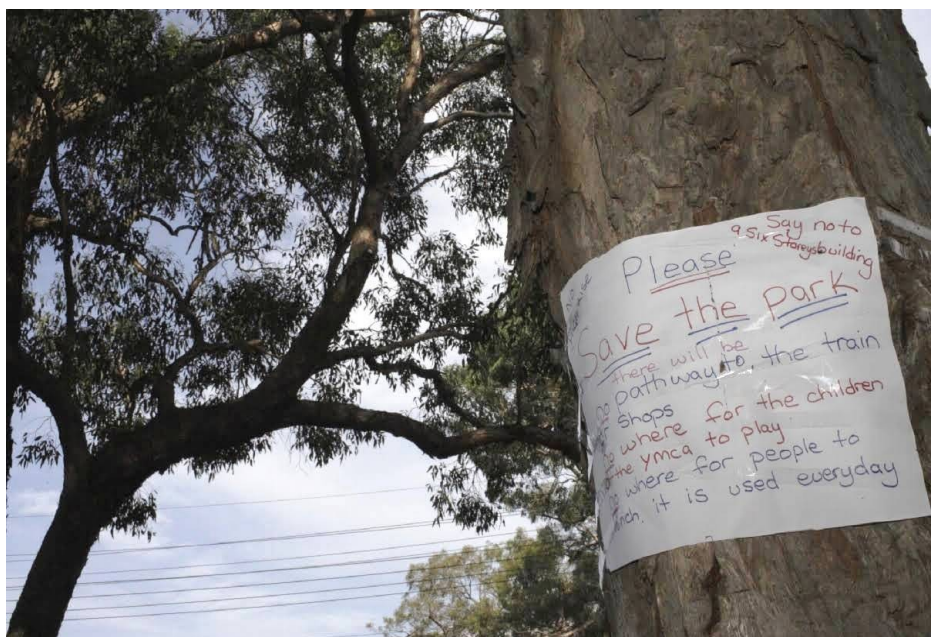 Say no to
a six storeys building
Please
Save the park
there will be
no pathway to the train
or shops
no where for the children
of the ymca to play
no where for people to
lunch. it is used everyday